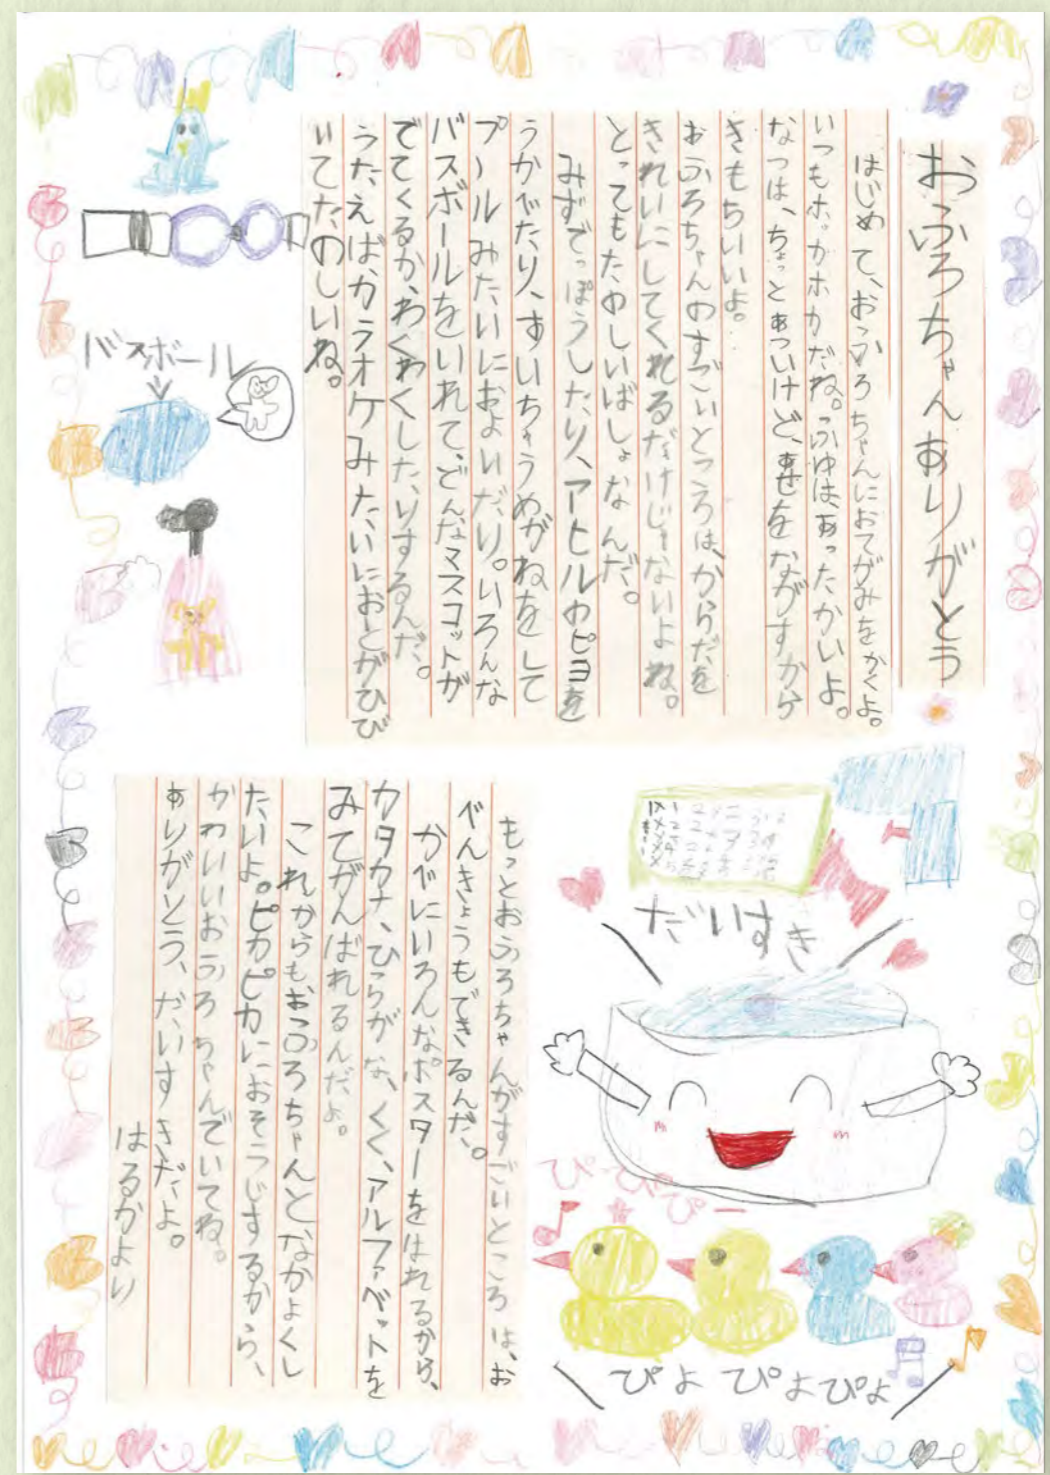 おふろちゃんありがとう
はじめて、おふろちゃんにおてがみをかくよ。
いつもホカホカだね。ふゆはあったかいよ。
なつは、ちょっとあついけど、あせをながすから
きもちいいよ。
おふろちゃんのすごいところは、からだを
きれいにしてくれるだけじゃないよね。
とってもたのしいばしょなんだ。
みずでっぽうしたり、アヒルのピヨを
うかべたり、すいちゅうめがねをして
プールみたいにおよいだり。いろんな
バスボールをいれて、どんなマスコットが
でてくるか、わくわくしたりするんだ。
うたえば、カラオケみたいにおとがひび
いてたのしいね。
バスボール
もっとおふろちゃんがすごいところは、お
べんきょうもできるんだ。
かべにいろんなポスターをはれるから、
カタカナ、ひらがな、くく、アルファベットを
みてがんばれるんだよ。
これからもおふろちゃんとなかよくし
たいよ。ピカピカにおそうじするから、
かわいいおふろちゃんでいてね。
ありがとう、だいすきだよ。
はるかより
だいすき
ぴーぴーぴー
ぴよぴよぴよ